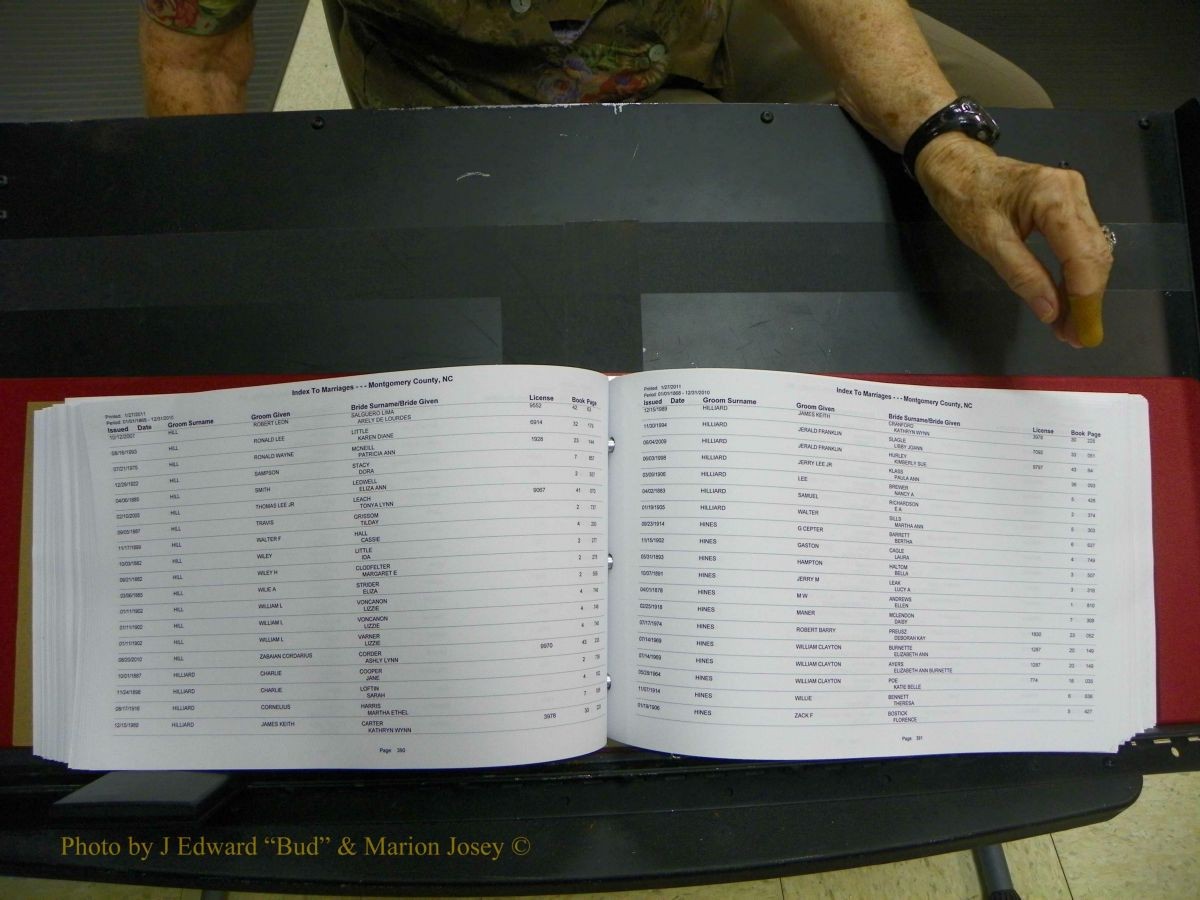 Index To Marriages - - - Montgomery County, NC
Printed: 1/27/2011
Period: 01/01/1868 - 12/31/2010
Issued Date Groom Surname Groom Given Bride Surname/Bride Given License Book Page
10/12/2007 HILL ROBERT LEON SALGUERO LIMA 9552 42
ARELY DE LOURDES
HILL RONALD LEE LITTLE 6914 32
KAREN DIANE
07/21/1975 HILL RONALD WAYNE MCNEILL 1928 23 144
PATRICIA ANN
12/29/1922 HILL SAMPSON STACY 7
DORA
HILL SMITH LEDWELL
ELIZA ANN
HILL THOMAS LEE JR LEACH 9067 41
TONYA LYNN
HILL TRAVIS GRISSOM 2
TILDAY
HILL WALTER F HALL 4
CASSIE
HILL WILEY LITTLE
IDA
HILL WILEY H CLODFELTER 2
MARGARET E
HILL WILIE A STRIDER 2
ELIZA
01/11/1902 HILL WILLIAM L VONCANON 4
LIZZIE
01/11/1902 HILL WILLIAM L VONCANON 4
LIZZIE
01/11/1902 HILL WILLIAM L VARNER 4
LIZZIE
08/20/2010 HILL ZABAIAN CORDARIUS CORDER 9970 43
ASHLY LYNN
10/01/1887 HILLIARD CHARLIE COOPER 2
JANE
11/24/1898 HILLIARD CHARLIE LOFTIN 4
SARAH
HILLIARD CORNELIUS HARRIS 7
MARTHA ETHEL
12/15/1989 HILLIARD JAMES KEITH CARTER 3978 30
KATHRYN WYNN
Page 390
Index To Marriages - - - Montgomery County, NC
Printed: 1/27/2011
Period: 01/01/1868 - 12/31/2010
Issued Date Groom Surname Groom Given Bride Surname/Bride Given License Book Page
12/15/1989 HILLIARD JAMES KEITH CRANFORD 3978 30
KATHRYN WYNN
11/30/1994 HILLIARD JERALD FRANKLIN SLAGLE 33
LIBBY JOANN
HILLIARD JERALD FRANKLIN HURLEY 9797 43
KIMBERLY SUE
HILLIARD JERRY LEE JR KLASS
PAULA ANN
03/09/1906 HILLIARD LEE BREWER 5
NANCY A
04/02/1883 HILLIARD SAMUEL RICHARDSON 2
E A
01/19/1905 HILLIARD WALTER SILLS 5
MARTHA ANN
HINES G CEPTER BARRETT 6
BERTHA
11/15/1902 HINES GASTON CAGLE 4
LAURA
HINES HAMPTON HALTOM 3
BELLA
HINES JERRY M LEAK 3
LUCY A
04/01/1878 HINES M W ANDREWS 1 810
ELLEN
02/25/1918 HINES MANER MCLENDON 7
DAISY
07/17/1974 HINES ROBERT BARRY PREUSZ 1830 23 052
DEBORAH KAY
07/14/1969 HINES WILLIAM CLAYTON BURNETTE 1287 20 149
ELIZABETH ANN
07/14/1969 HINES WILLIAM CLAYTON AYERS 1287 20 149
ELIZABETH ANN BURNETTE
05/28/1964 HINES WILLIAM CLAYTON POE 774 18 035
KATIE BELLE
11/07/1914 HINES WILLIE BENNETT 6
THERESA
01/19/1906 HINES ZACK F BOSTICK 5 427
FLORENCE
Page 391
Photo by J Edward “Bud” & Marion Josey ©